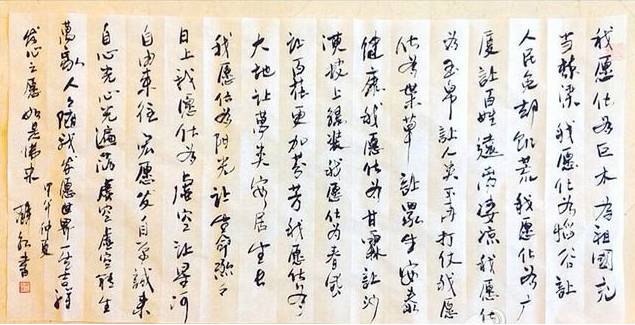 我愿化为巨木为祖國充
当栋梁我愿化为稻谷让
人民免却饥荒我愿化为广
厦让百姓遠离凄凉我愿化
为玉帛让人类不再打仗我愿
化为药草让众生安泰
健康我愿化为甘霖让沙
漠披上绿装我愿化为春风
让百花更加芬芳我愿化为
大地让萬类安居生长
我愿化为阳光让生命
日上我愿化为虚空让星河
自由来往宏愿发自于誠来
自心光心光遍满虚空虚空转生
萬象人人随我发愿世界一片吉祥
发心之愿如是
甲午仲夏
書